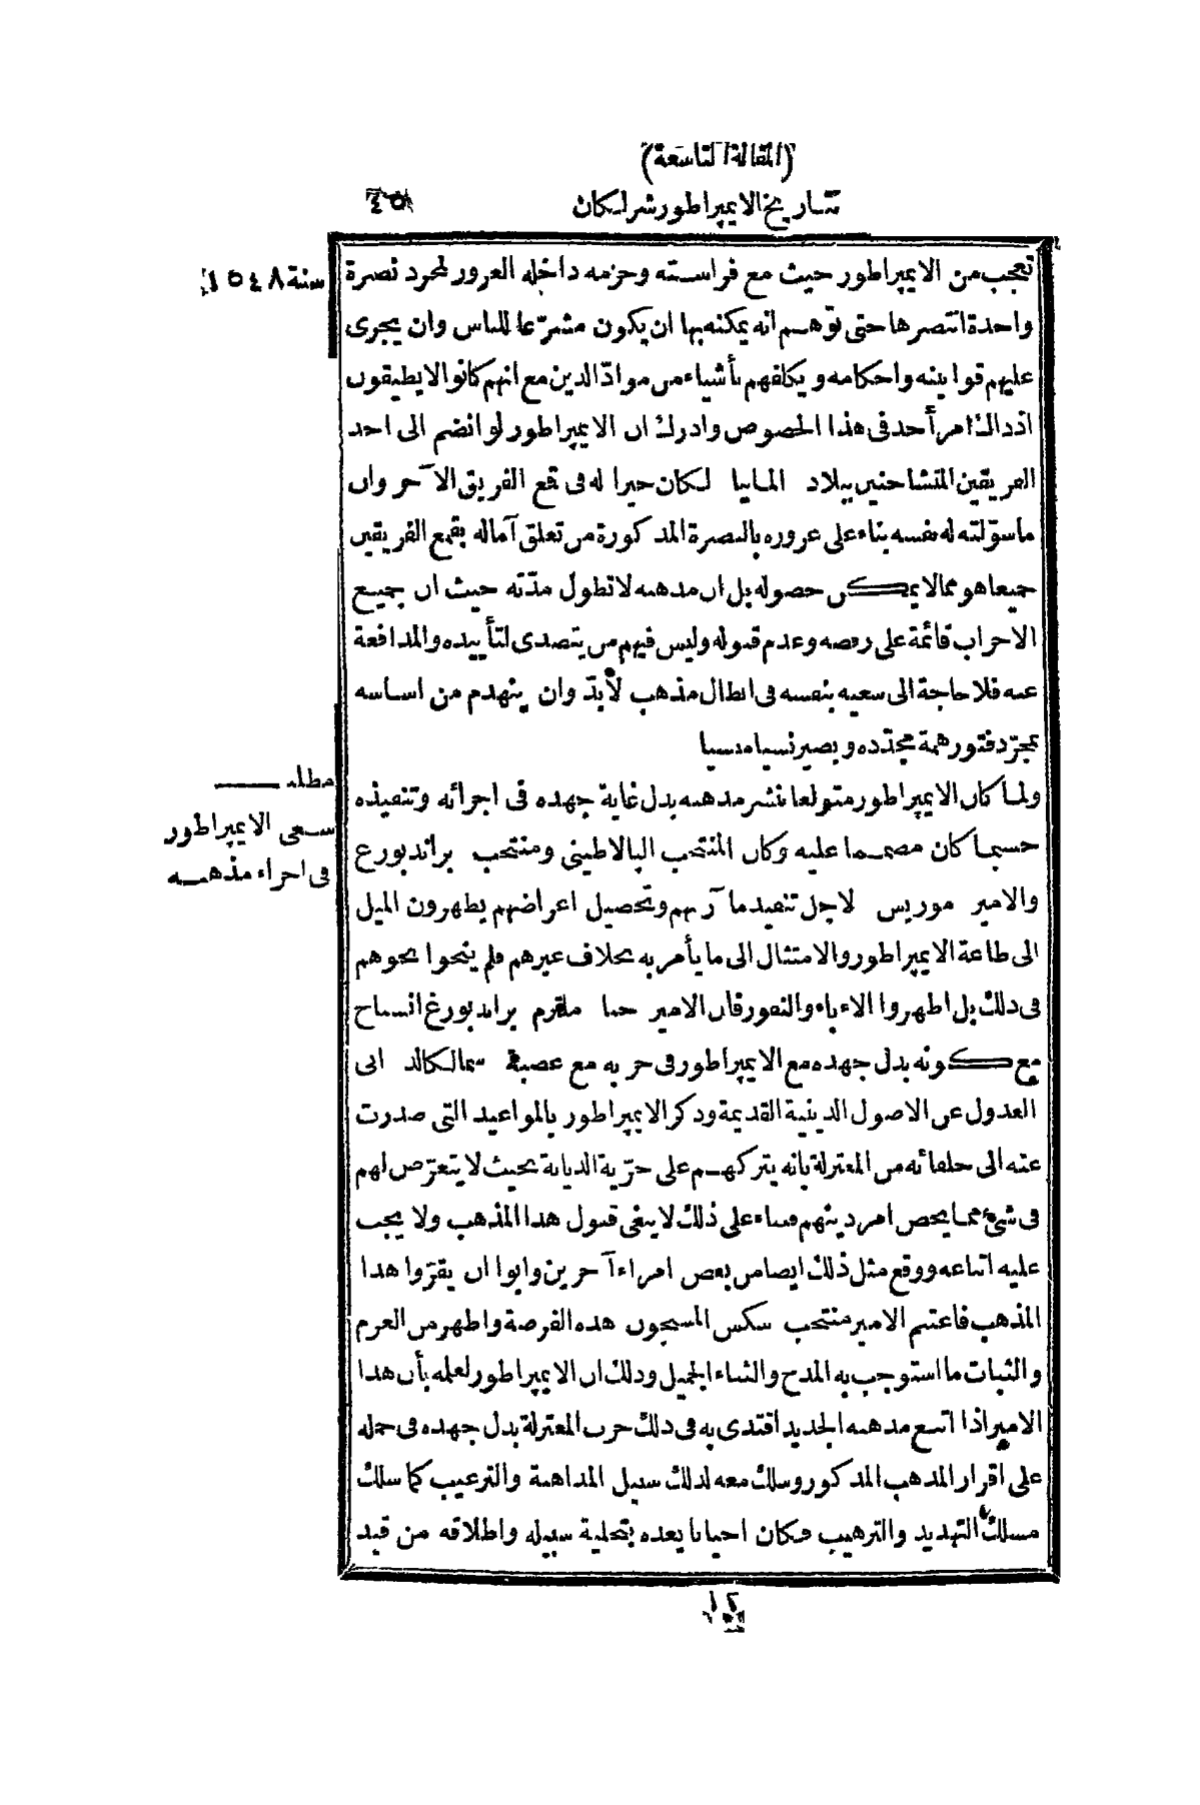 (المقالة التاسعة)
تاريخ الايمپراطور شرلكان
٤٥
سنة ١٥٤٨
تعجب من الايمپراطور حيث مع فراسته وحزمه داخله الغرور لمجرد نصرة
واحدة انتصرها حتى توهم انه يمكنه بها ان يكون مشرّعا للناس وان يجرى
عليهم قوانينه واحكامه ويكلفهم بأشياء من موادّ الدين مع انهم كانوا لا يطيقون
اذ ذاك امر أحد فى هذا الخصوص وادرك ان الايمپراطور لو انضم الى احد
الفريقين المتشاحنين ببلاد المانيا لكان خيرا له فى قمع الفريق الآخر وان
ما سوّلته له نفسه بناء على غروره بالنصرة المذكورة من تعلق آماله بقمع الفريقين
جميعا هو مما لا يمكن حصوله بل ان مذهبه لا تطول مدّته حيث ان جميع
الاحزاب قائمة على رفضه وعدم قبوله وليس فيهم من يتصدى لتأييده والمدافعة
عنه فلا حاجة الى سعيه بنفسه فى ابطال مذهب لا بدّ وان ينهدم من اساسه
بمجرّد فتور همة مجدّده ويصير نسيا منسيا
مطلب
سعى الايمپراطور
فى اجراء مذهبه
ولما كان الايمپراطور متولعا بنشر مذهبه بذل غاية جهده فى اجرائه وتنفيذه
حسبما كان مصمما عليه وكان المنتخب الپالاطينى ومنتخب براندبورغ
والامير موريس لاجل تنفيذ مآربهم وتحصيل اغراضهم يظهرون الميل
الى طاعة الايمپراطور والامتثال الى ما يأمر به بخلاف غيرهم فلم ينحوا نحوهم
فى ذلك بل اظهروا الاباء والنفور فان الامير حنا ملتزم براندبورغ انسپاح
مع كونه بذل جهده مع الايمپراطور فى حربه مع عصبة سمالكالد ابى
العدول عن الاصول الدينية القديمة وذكر الايمپراطور بالمواعيد التى صدرت
عنه الى حلفائه من المعتزلة بانه يتركهم على حرّية الديانة بحيث لا يتعرّض لهم
فى شئ مما يخص امر دينهم فبناء على ذلك لا ينبغى قبول هذا المذهب ولا يجب
عليه اتباعه ووقع مثل ذلك ايضا من بعض امراء آخرين وابوا ان يقرّوا هذا
المذهب فاغتنم الامير منتخب سكس المسجون هذه الفرصة واظهر من العزم
والثبات ما استوجب به المدح والثناء الجميل وذلك ان الايمپراطور لعلمه بأن هذا
الامير اذا اتبع مذهبه الجديد اقتدى به فى ذلك حزب المعتزلة بذل جهده فى حمله
على اقرار المذهب المذكور وسلك معه لذلك سبيل المداهنة والترغيب كما سلك
مسلك التهديد والترهيب فكان احيانا يعده بتخلية سبيله واطلاقه من قيد